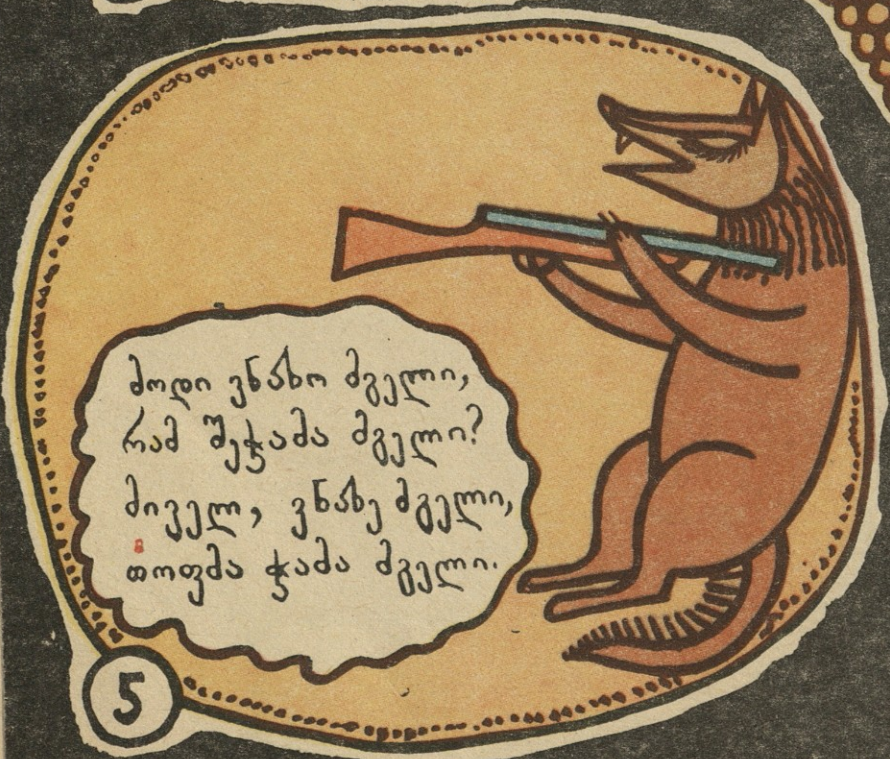 მოდი ვნახო მგელი,
რამ შეჭამა მგელი?
მიველ, ვნახე მგელი,
თოფმა ჭამა მგელი.
5